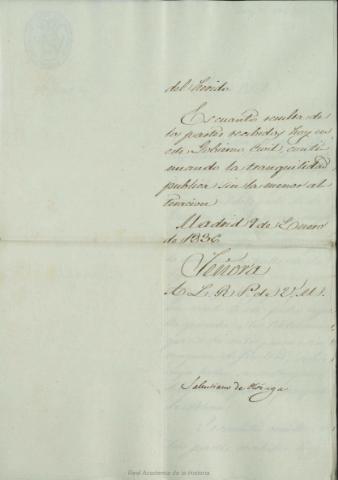 del herido.
Es cuanto resulta de
los partes recibidos hoy en
este Gobierno Civil, conti
nuando la tranquilidad
publica sin la menor al
teracion
Madrid 9 de Enero
de 1836.
Señora
A L. R. P. de V. M.
Salustiano de Olózaga
Real Academia de la Historia